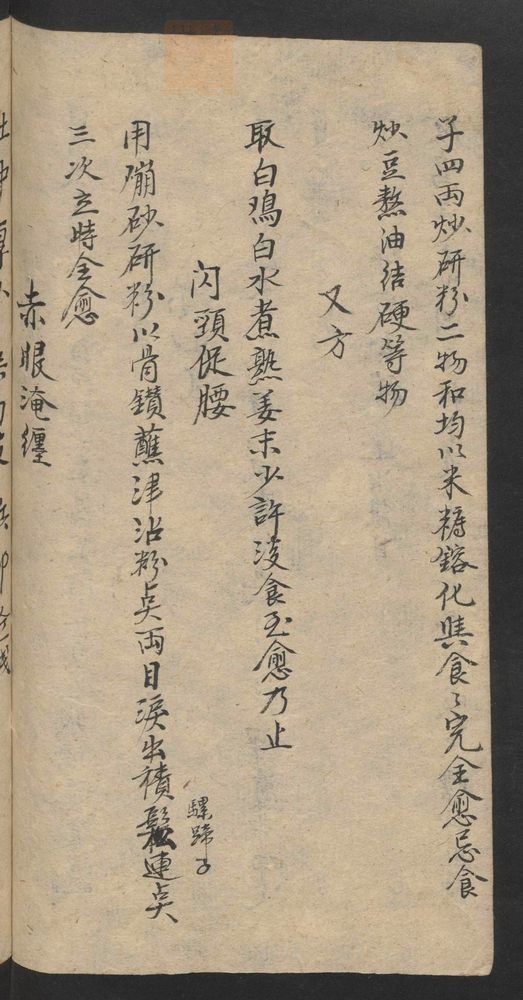 子四两炒研粉二物和均以米糖鎔化與食〻完全愈忌食
炒豆熬油结硬等物
又方
取白鴿白水煮熟姜末少許淡食至愈乃止
闪頸促腰
用硼砂研粉以骨鑚蘸津沾粉点両目淚出積鬆連点
騾蹄子
三次立時全愈
赤眼淹纏